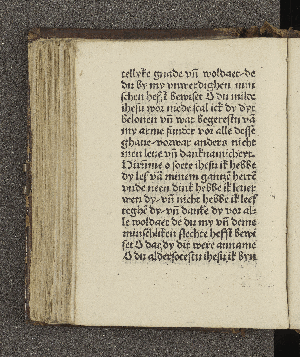 tellyke gnade vñ woldaet de
du by my vnwerdighen min
schen hefst bewiset O du milde
ihesu wor mede scal ick dy dyt
belonen vñ wat begerestu vã
my arme sunder vor alle desse
ghaue vorwar anders nicht
men leue vñ dancknamicheyt
o sote ihesu ik hebbe
dy lef vã minem gantzẽ hertẽ
vnde neen dink hebbe ik leuer
wen dy vñ nicht hebbe ik leef
teghẽ dy vñ dancke dy vor al
le woldaet de du my vñ deme
minschliken slechte hefst bewi
set O dat dy dit were anname
O du aldersoteste ihesu ik byn